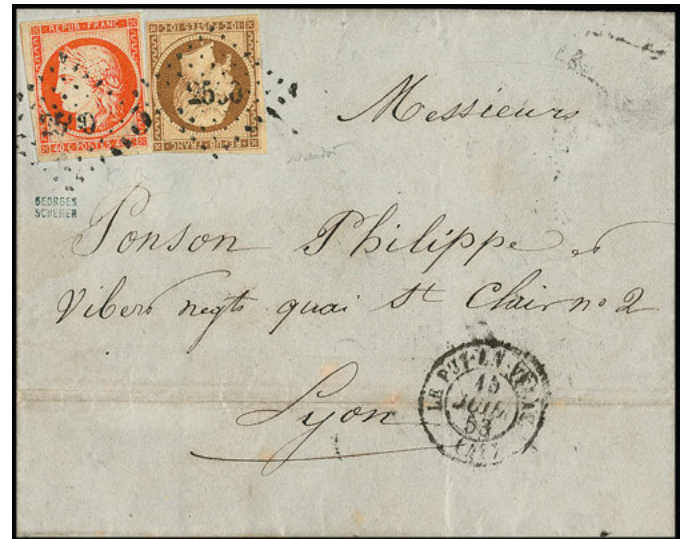 REPUB·FRANC·
40·C·POSTES·40
10·C·POSTES·10·C
REPUB·FRANC
GEORGES
SCHERER
Messieurs
Ponson Philippe et
Vibert negts quai St Clair no 2
Lyon
LE PUY-EN-VELAY
15
JUIL
53
(41)